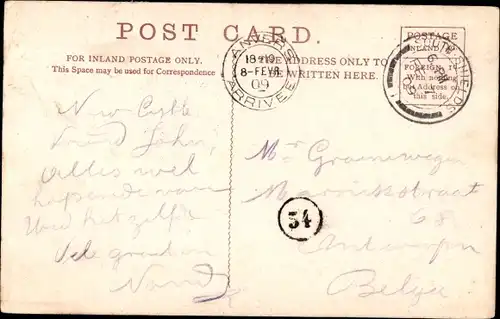 POST CARD.
FOR INLAND POSTAGE ONLY.
This Space may be used for Correspondence
THE ADDRESS ONLY TO
BE WRITTEN HERE.
POSTAGE
INLAND
FOREIGN 1d
With nothing
but Address on
this side.
ANVERS
18-19
8-FEVR
09
ARRIVEE
SOUTH SHIELDS
New Castle
Vriend John,
Alles wel
hopende van
U het zelfde
Vele groeten
Mr Groenewegen
straat
68
Antwerpen
Belga
34